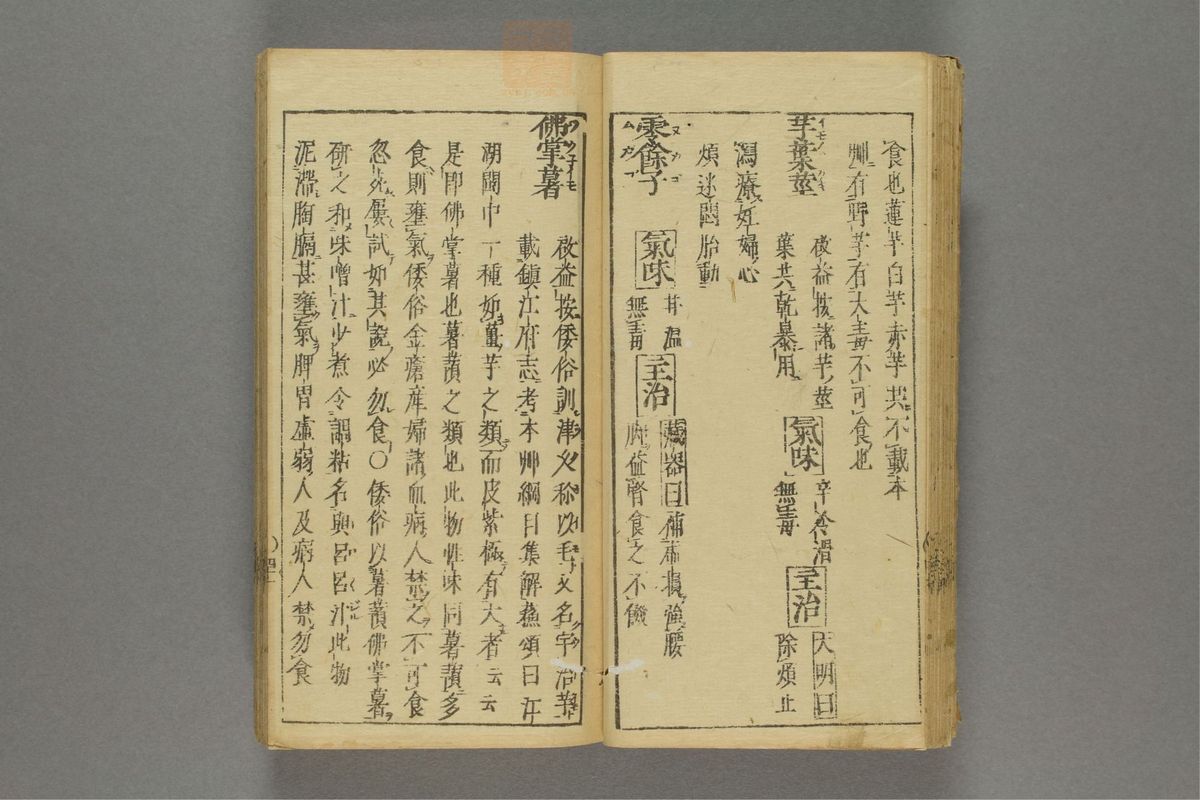 食也蓮芋白芋赤芋共不載本
艸有野芋有大毒不可食也
芋葉莖
イモノハクキ
啓益按諸芋莖
葉共乾暴用
氣味
辛冷滑
無毒
主治
大明曰
除煩止
瀉療妊婦心
煩迷悶胎動
零餘子
ヌカゴ
ムカゴ
氣味
甘温
無毒
主治
藏器曰補虛損強腰
脚益腎食之不饑
佛掌薯
ツクネイモ
啓益按倭俗訓津久称以毛又名宇治芋
載鎮江府志考本艸綱目集解蘓頌曰江
湖閩中一種如薑芋之類而皮紫極有大者云云
是即佛掌薯也薯蕷之類也此物性味同薯蕷多
食則壅氣倭俗金瘡産婦諸血病人禁之不可食
忽死屢試如其說必勿食〇倭俗以薯蕷佛掌薯
研之和味噌汁少煮令調粘名與呂呂汁此物
泥滯胸膈甚壅氣脾胃虛弱人及病人禁勿食